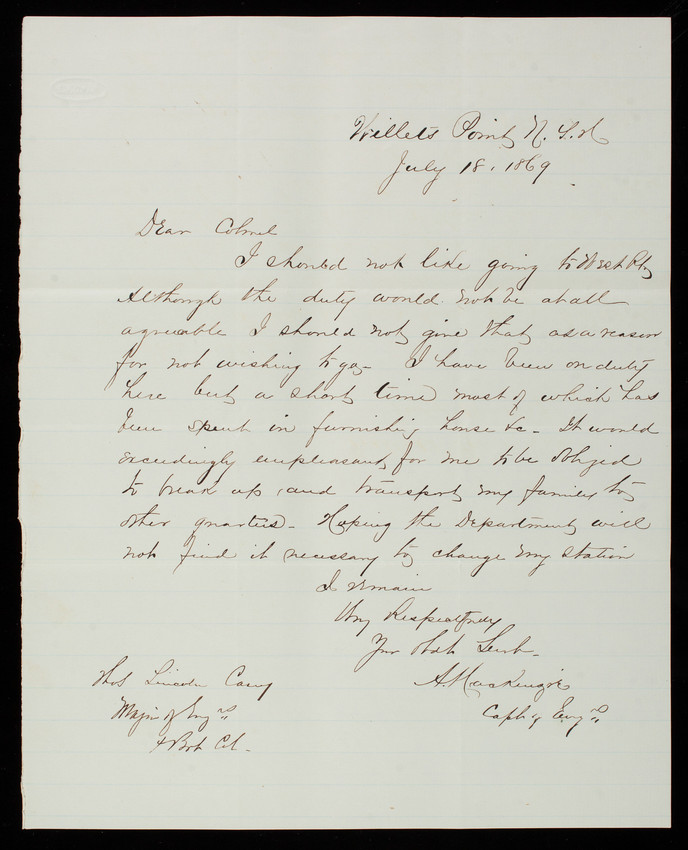 Willets Point, N. Y. H
July 18, 1869
Dear Colonel
I should not like going to West Pt,
Although the duty would not be at all
agreeable I should not give that, as a reason
for not wishing to go - I have been on duty
here but a short time most of which has
been spent in furnishing house &c - It would
exceedingly unpleasant, for me to be obliged
to break up, and transport my family to
other quarters - Hoping the Department will
not find it necessary to change my station
I remain
Very Respectfully
Your Obdt Servt -
A. Mackenzie
Capt of Engrs
Thos Lincoln Casey
Major of Engrs
& Bvt Col -